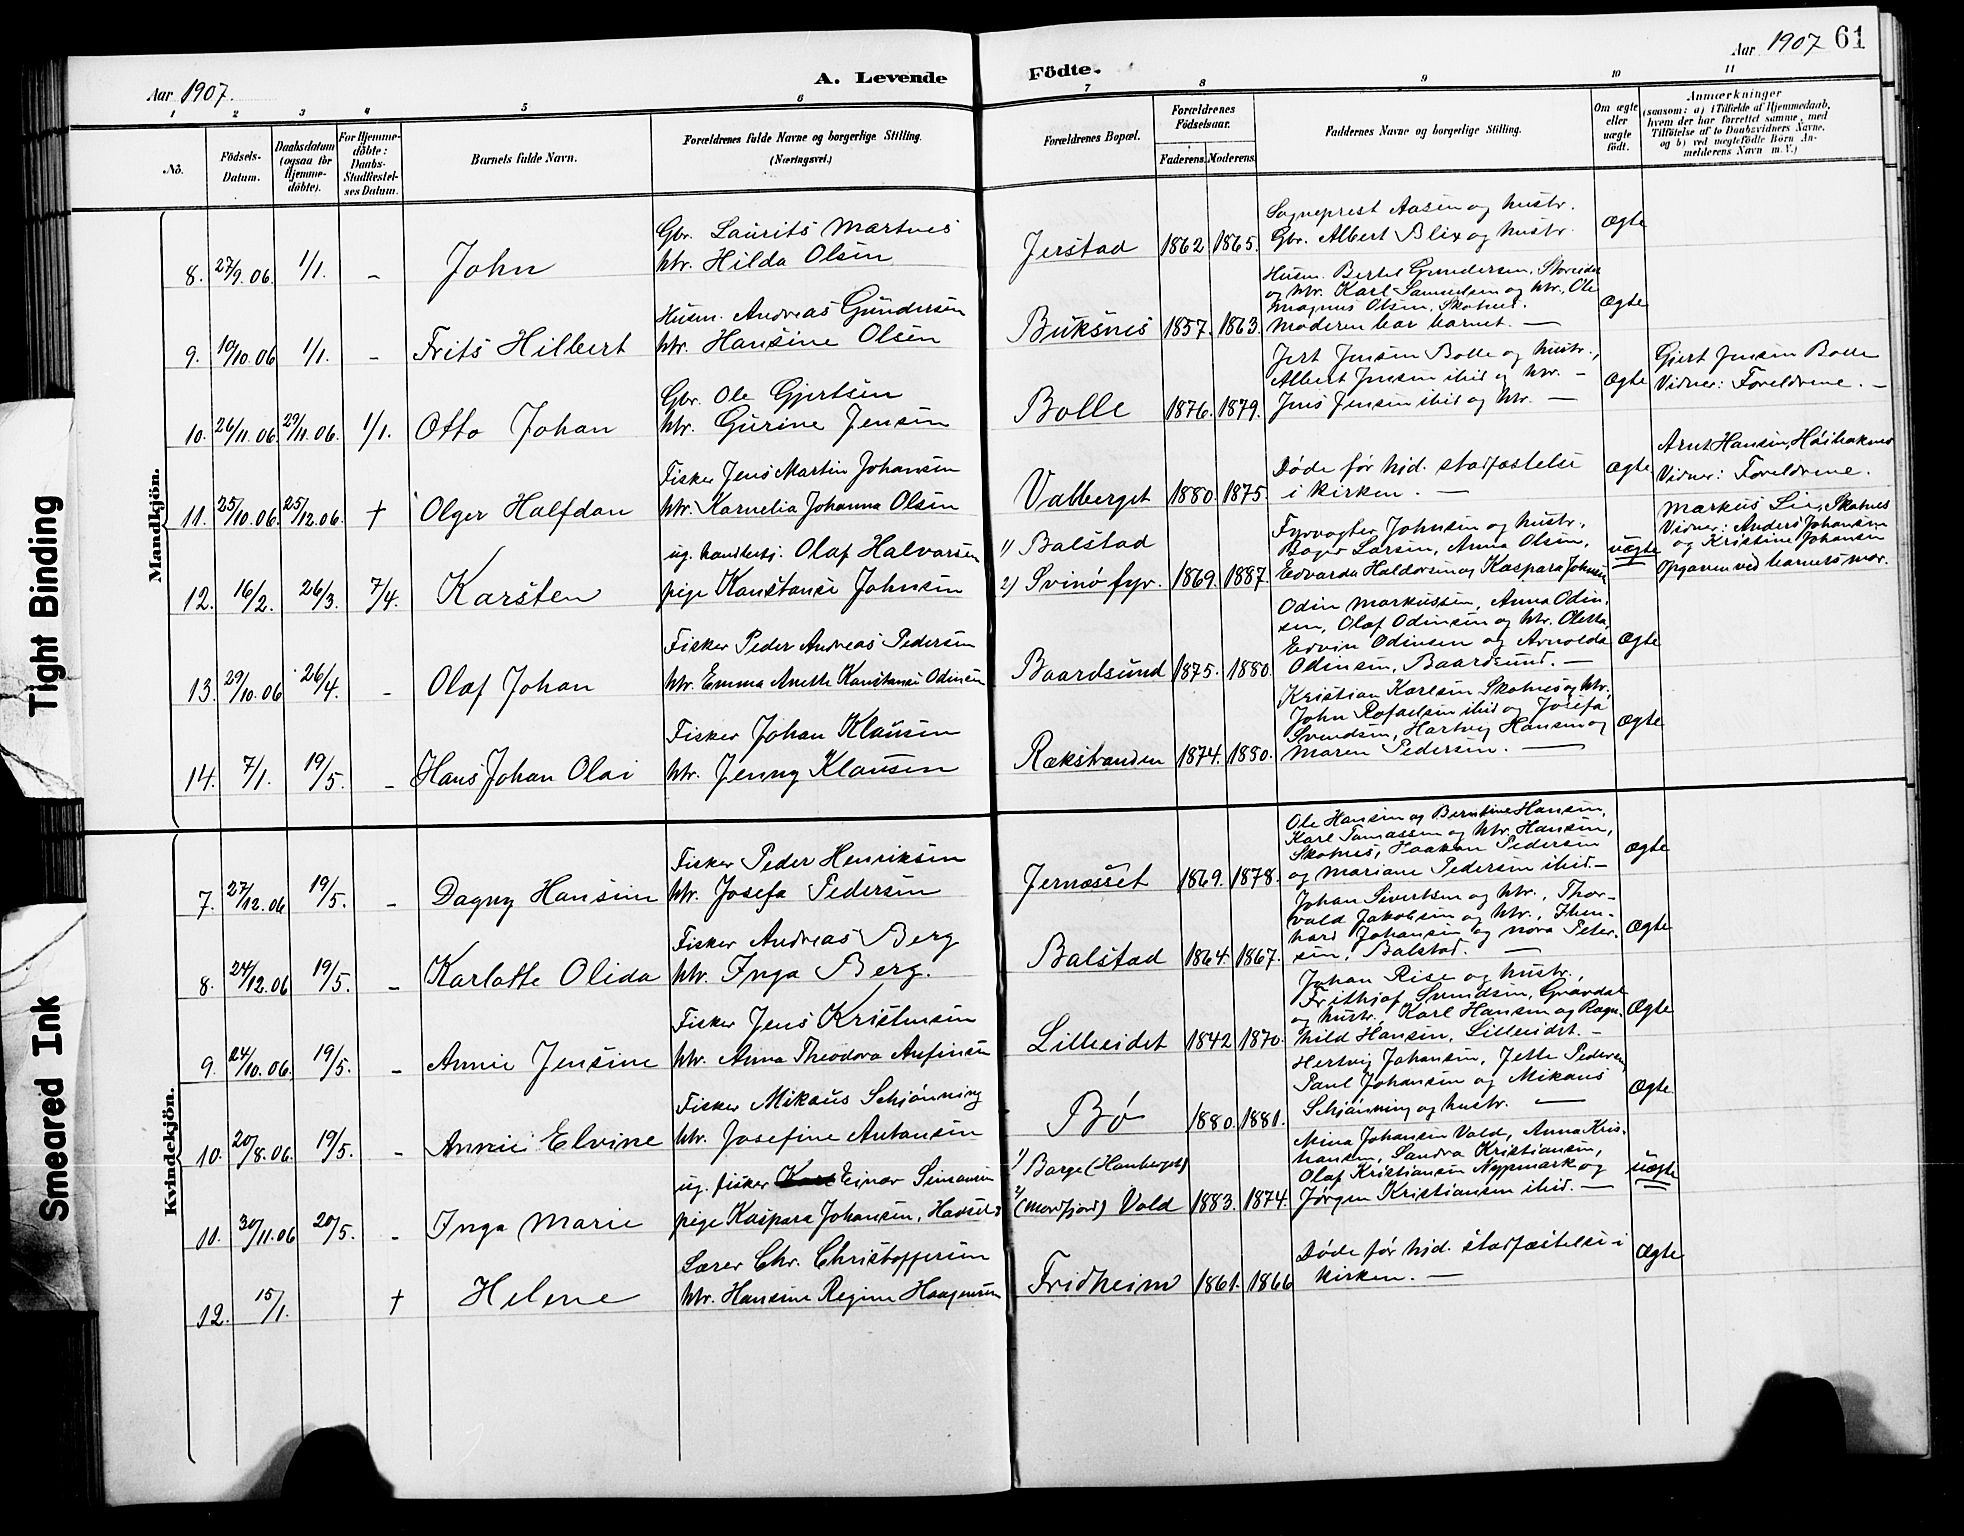 Aar 1907.
A. Levende
Födte.
Aar 1907 61
1 2 3 4 5 6 7 8 9 10 11
No.
Födsels-
Datum.
Daabsdatum
(ogsaa for
Hjemme-
döbte).
For Hjemme-
döbte:
Daabs-
Stadfæstel-
ses Datum.
Barnets fulde Navn.
Forældrenes fulde Navne og borgerlige Stilling.
(Næringsvei.)
Forældrenes Bopæl.
Forældrenes
Födselsaar.
Faderens. Moderens.
Faddernes Navne og borgerlig Stilling.
Om ægte
eller
uægte
födt.
Anmærkninger
(saasom: a) i Tilfælde af Hjemmedaab,
hvem der har forrettet samme, med
Tilföielse af to Daabsvidners Navne,
og b) ved uægtefödte Börn An-
melderens Navn m. V.)
Mandkjön.
8. 27/9.06. 1/1. - John
Gbr. Laurits Martnes
htr. Hilda Olsen
Jerstad 1862. 1865.
Sogneprest Aasen og hustr.
Gbr. Albert Blix og hustr.
ægte
9. 10/10.06 1/1. - Frits Hilbert
Husm. Andreas Gundersen
htr. Hansine Olsen
Buksnes 1857. 1863.
Husm. Bertel Gundersen, Storeidet
og htr. Karl Samuelsen og htr., Ole
Magnus Olsen, Skotnes.
Moderen bar barnet. —
ægte
10. 26/11.06 29/11.06. 1/1. Otto Johan
Gbr. Ole Gjertsen
htr. Gurine Jensen
Bolle 1876. 1879.
Jert Jensen Bolle og hustr.,
Albert Jensen ibid og htr. -
Jens Jensen ibid og htr. —
ægte
Gjert Jensen Bolle
Vidner: Foreldrene. -
11. 25/10.06 25/12.06. † Olger Halfdan
Fisker Jens Martin Johansen
htr. Kornelia Johanna Olsen
Valberget 1880. 1875.
Døde før hjd. stadfæstelse
i kirken. —
ægte
Arnt Hansen,
Vidner: Foreldrene.
12. 16/2. 26/3. 7/4. Karsten
ug. handelsbj. Olaf Halvorsen
pige Konstanse Johnsen
1) Balstad
2) Svinø fyr. 1869. 1887.
Fyrvogter Johnsen og hustr.,
Roger Larsen, Anna Olsen,
Edvarda Haldorsen og Kaspara Johnsen
uægte
Markus Lie, Skotnes
Vidner: Anders Johansen
og Kristine Johansen
Opgaven ved barnets mor.
13. 29/10.06 26/4. - Olaf Johan
Fisker Peder Andreas Pedersen
htr. Emma Anette Konstanse Odinsen
Baardsund 1875. 1880
Odin Markussen, Anna Odin-
sen, Olaf Odinsen og htr. Oletta,
Edvin Odinsen og Arnolda
Odinsen, Baardsund. —
ægte
14. 7/1. 19/5. - Hans Johan Olai
Fisker Johan Klausen
htr. Jenny Klausen
Rækstranden 1874. 1880.
Kristian Karlsen Skotnes og htr,
John Rafaelsen ibid og Josefa
Svendsen, Hartvig Hansen og
Maren Pedersen. —
ægte
Kvindekjön.
7. 27/12.06 19/5. - Dagny Hansine
Fisker Peder Henriksen
htr. Josefa Pedersen
Jernæsset 1869. 1878.
Ole Hansen og Berntine Hansen,
Karl Tomassen og htr. Hansen,
Skotnes, Haakon Pedersen
og Mariane Pedersen ibid. -
ægte
8. 24/12.06 19/5. - Karlotte Olida
Fisker Andreas Berg
htr. Inga Berg.
Balstad 1864. 1867.
Johan Sivertsen og htr., Thor-
vald Jakobsen og htr.,
Johansen og Nora Peter-
sen, Balstad. —
ægte
9. 24/10.06. 19/5. - Annie Jensine
Fisker Jens Kristensen
htr. Anna Theodora Anfinsen
Lilleeidet 1842 1870.
Johan Rise og hustr.,
Frithjof Svendsen, Gravdal
og hustr. Karl Hansen og Ragn-
hild Hansen, Lilleeidet. -
ægte
10. 20/8.06. 19/5. - Annie Elvine
Fisker Mikaus Schjønning
htr. Josefine Antonsen
Bø 1880. 1881.
Hertvig Johansen, Jette Pedersen,
Paul Johansen og Mikaus
Schjønning og hustr. —
ægte
11. 30/11.06 20/5. - Inga Marie
ug. fisker Einar Simonsen
pige Kaspara Johansen, Hadsel
1) Borge (Hauberget)
2) (Mordfjord) Vold 1883. 1874.
Mina Johansen Vold, Anna Kris-
tiansen, Sandra Kristiansen,
Olaf Kristiansen Nypmark og
Jørgen Kristiansen ibid. —
uægte
12. 15/1. † Helene
Lærer Chr. Christoffersen
htr. Hansine Regine Haagensen
Fridheim 1861. 1866
Døde før hjd. stadfæstelse i
kirken. —
ægte
Tight Binding
Smeared Ink